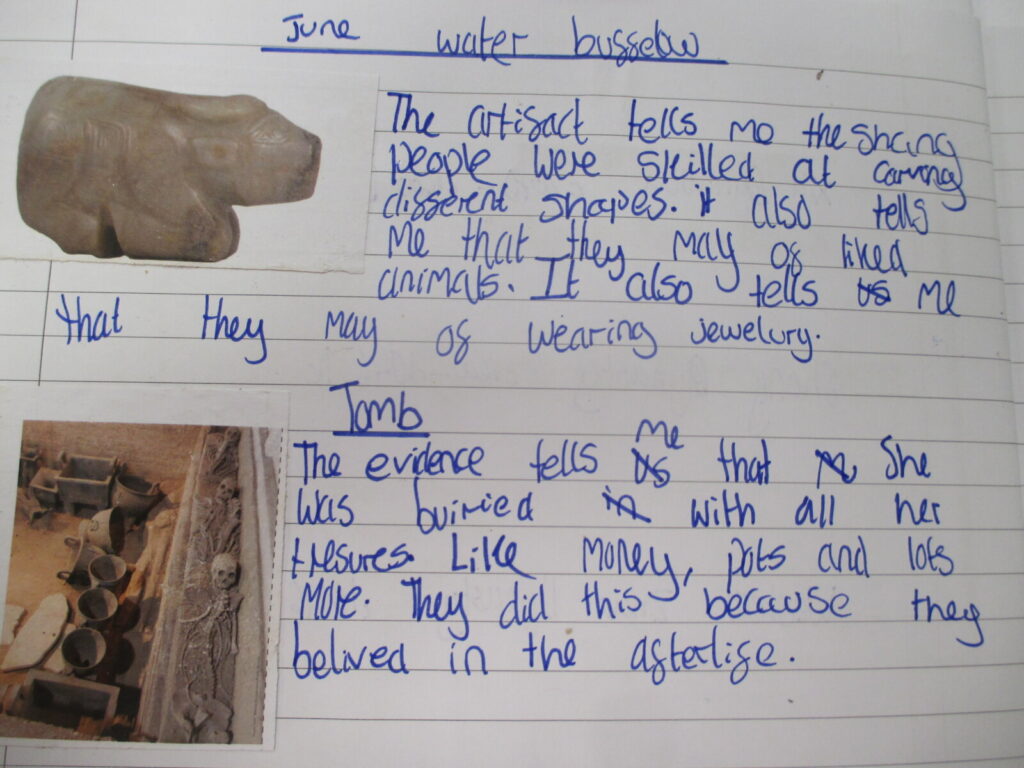 June water buffelow
The artifact tells me the shang
people were skilled at carving
different shapes. it also tells
me that they may of liked
animals. It also tells me
that they may of wearing jewelury.
Tomb
The evidence tells me that She
was buiried with all her
tresures. Like money, pots and lots
more. They did this because they
belived in the afterlife.